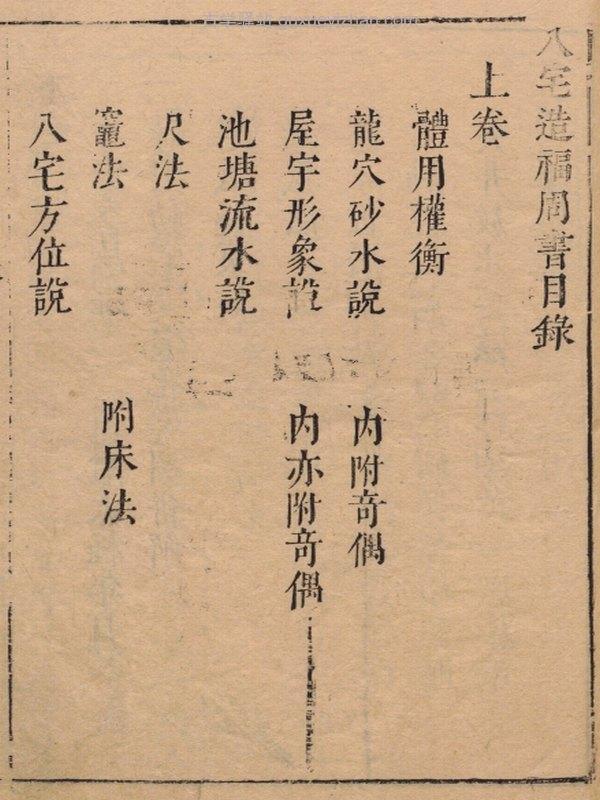 八宅造福周書目錄
上卷
體用權衡
龍穴砂水說 內附奇偶
屋宇形象說 內亦附奇偶
池塘流水說
尺法
竈法 附床法
八宅方位說